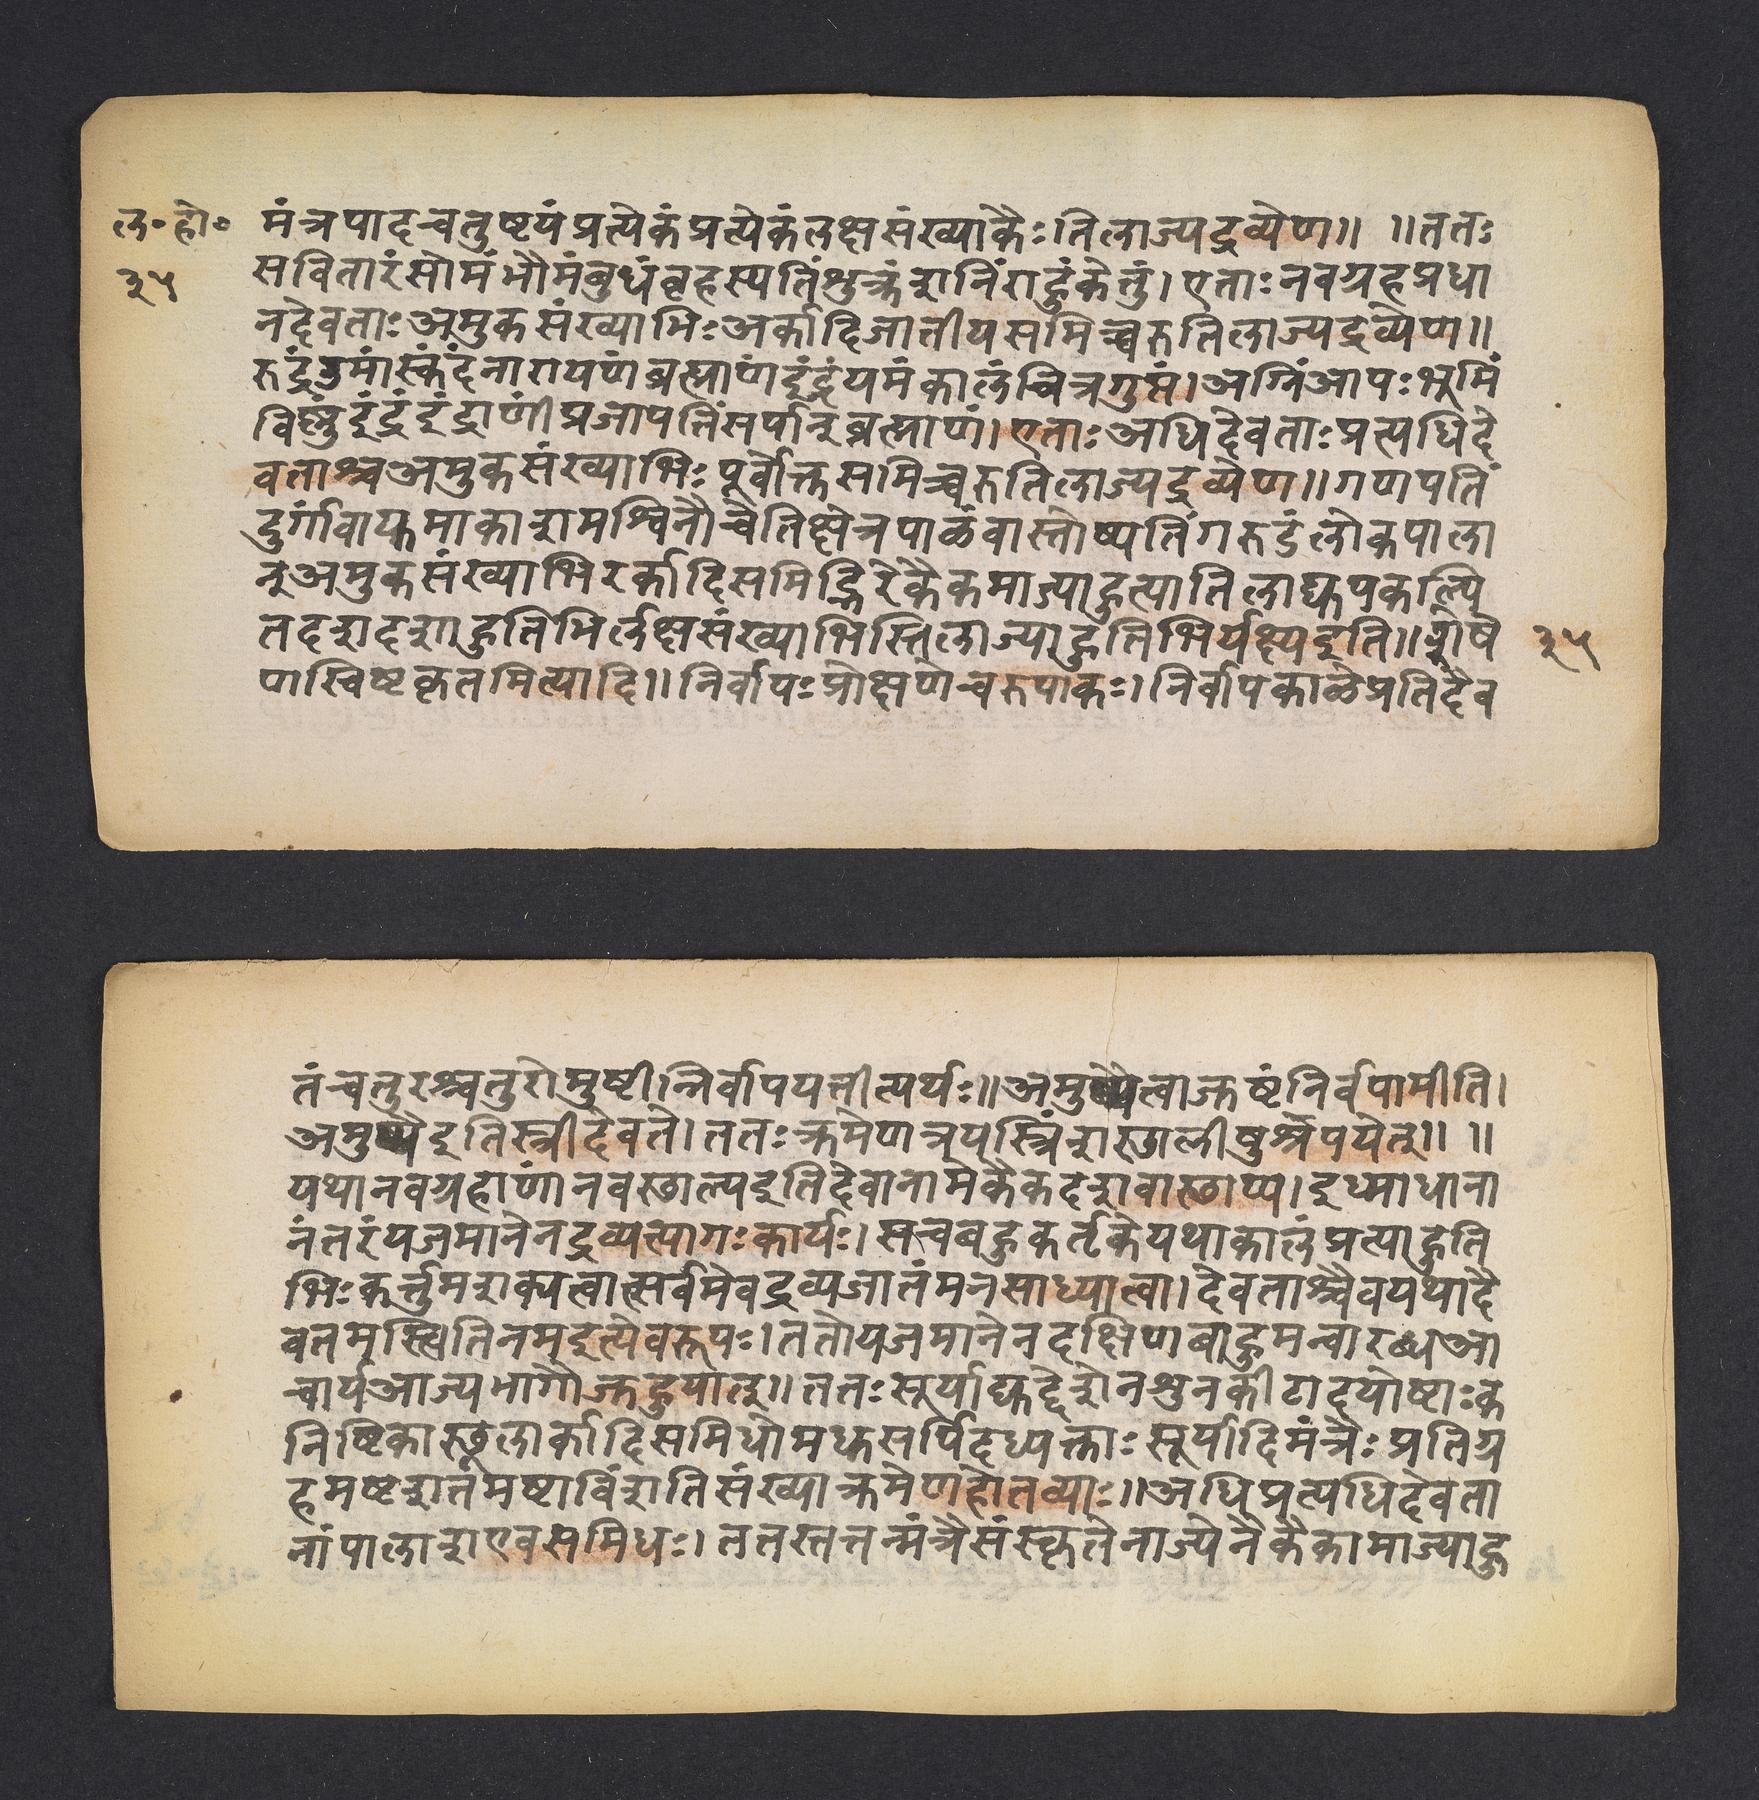 ल॰हो॰
३५
मंत्रपादचतुष्टयंप्रत्येकंप्रत्येकंलक्षसंख्याकैःतिलाज्यद्रव्येण॥ ॥ततः
सवितारंसोमंभौमंबुधंबृहस्पतिंशुक्रंशनिंराहुंकेतुं। एताःनवग्रहप्रधा
नदेवताःअमुकसंख्याभिःअर्कादिजातीयसमिच्चरुतिलाज्यद्रव्येण॥
रुद्रंउमांस्कंदंनारायणंब्रह्माणंइंद्रंयमंकालंचित्रगुप्तं।अग्निंआपःभूमिं
विष्णुंइंद्रंइंद्राणींप्रजापतिंसर्पान्ब्रह्माणं। एताःअधिदेवताःप्रत्यधिदे
वताश्चअमुकसंख्याभिःपूर्वोक्तसमिच्चरुतिलाज्यद्रव्येण॥गणपतिं
दुर्गांवायुमाकाशमश्विनौचेतिक्षेत्रपाळंवास्तोष्पतिंगरुडंलोकपाला
न्अमुकसंख्याभिरर्कादिसमिद्भिरेकैकमाज्याहुत्यातिलाद्युपकल्पि
तदशदशाहुतिभिर्लक्षसंख्याभिस्तिलाज्याहुतिभिर्यक्ष्यइति॥शेषे
णस्विष्टकृतमित्यादि॥निर्वापःप्रोक्षणंचरुपाकः।निर्वापकाळेप्रतिदैव
३५
तंचतुरश्चतुरोमुष्टीन्निर्वापयतीत्यर्थः॥अमुष्यैत्वाजुष्टंनिर्वपामीति।
अमुष्यैइतिस्त्रीदेवते। ततःक्रमेणत्र्यस्त्रिंशस्थालीषुश्रपयेत्॥ ॥
यथानवग्रहाणांनवस्थाल्यइतिदेवानामेकैकदशवास्थाप्य। इध्माधाना
नंतरंयजमानेनद्रव्यत्यागःकार्यः। सचबहुकर्तृकेयथाकालंप्रत्याहुति
भिःकर्त्तुमशक्यत्वात्सर्वमेवद्रव्यजातंमनसाध्यात्वा।देवताश्चैवयथादै
वतमस्त्वितिनमइत्येवरूपः।ततोयजमानेनदक्षिणबाहुमन्वारब्धआ
चार्यआज्यभागौजुहुयात्॥ततःसूर्याद्युद्देशेनशुनकीटाद्योष्टाःक
निष्टिकास्थूलार्कादिसमिधोमधुसर्पिदध्यक्ताःसूर्यादिमंत्रैःप्रतिग्र
हमष्टशतंमष्टाविंशतिसंख्याक्रमेणहोतव्याः॥अधिप्रत्यधिदेवता
नांपालाशएवसमिधः। ततस्तत्तन्मंत्रैसंस्कृतेनाज्येनैकैकामाज्याहु